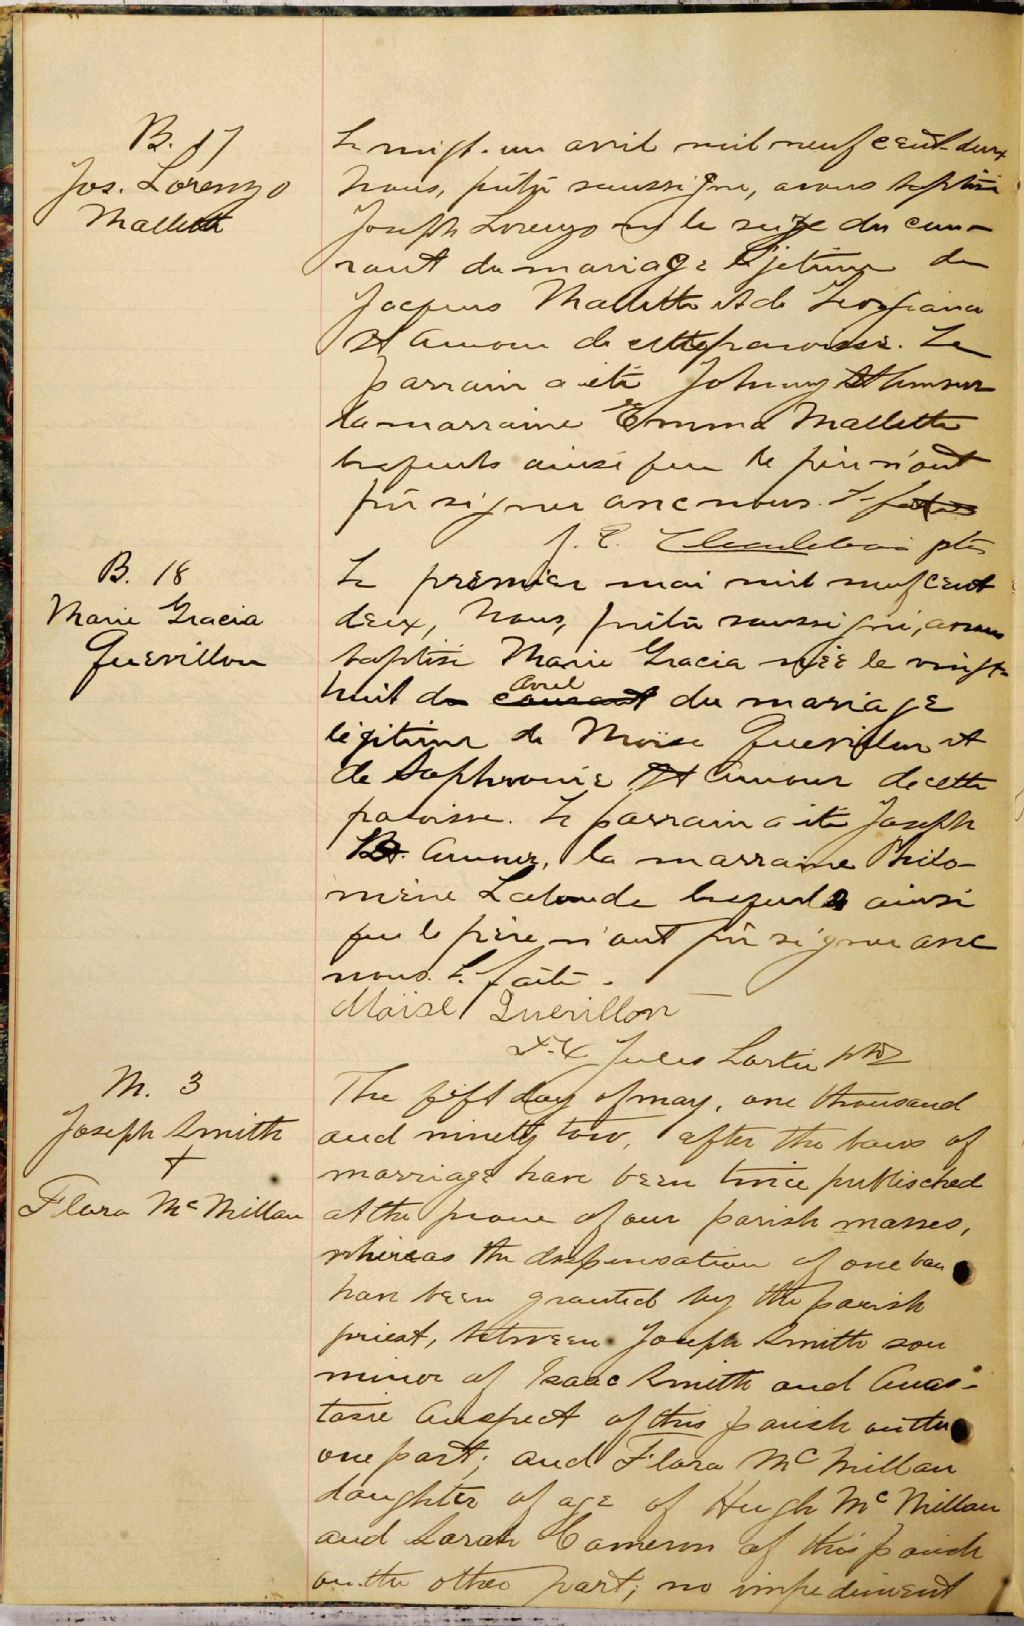 B. 17
Jos. Lorenzo
Mallette
Le vingt-un avril mil neuf cent-deux
Nous, prêtre soussigné, avons baptisé
Joseph Lorenzo né le seize du cou-
rant du mariage légitime de
Jacques Mallette et de Georgiana
St Amour de cette paroisse. Le
parrain a été Johnny St Amour
la marraine Emma Mallette
lesquels ainsi que le père n'ont
pû signer avec nous.
J. E. ptre
B. 18
Marie Gracia
Quevillon
Le premier mai mil neuf cent
deux, Nous, prêtre soussigné, avons
baptisé Marie Gracia née le vingt-
huit de avril courant du mariage
légitime de Moïse Quevillon et
de Sophronie St Amour de cette
paroisse. Le parrain a été Joseph
St. Amour, la marraine Philo-
mène Lalonde lesquels ainsi
que le père n'ont pû signer avec
nous.
Moïse Quevillon
Jules Lortie ptre
M. 3
Joseph Smith
+
Flora Mc Millan
The fift day of may, one thousand
and ninety tow, after the bans of
marriage have been twice publisched
at the prone of our parish masses,
whereas the dispensation of one ban
have been granted by the parish
priest, between Joseph Smith son
minor of Isaac Smith and Anas-
tasie of this parish on the
one part; and Flora Mc Millan
daughter of age of Hugh Mc Millan
and Sarah Cameron of this parish
on the other part; no impediment